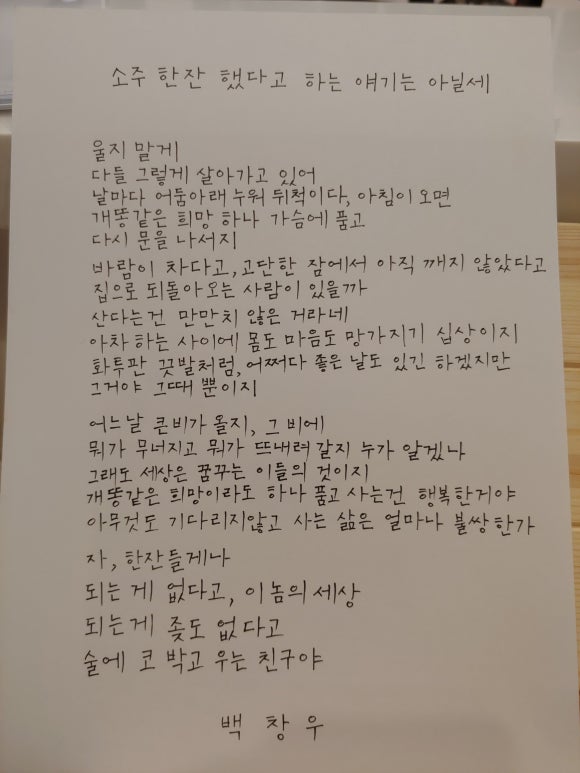 소주 한잔 했다고 하는 얘기는 아닐세
울지 말게
다들 그렇게 살아가고 있어
날마다 어둠아래 누워 뒤척이다, 아침이 오면
개똥같은 희망 하나 가슴에 품고
다시 문을 나서지
바람이 차다고, 고단한 잠에서 아직 깨지 않았다고
집으로 되돌아오는 사람이 있을까
산다는건 만만치 않은 거라네
아차 하는 사이에 몸도 마음도 망가지기 십상이지
화투판 끗발처럼, 어쩌다 좋은 날도 있긴 하겠지만
그거야 그때 뿐이지
어느날 큰비가 올지, 그 비에
뭐가 무너지고 뭐가 뜨내려 갈지 누가 알겠나
그래도 세상은 꿈꾸는 이들의 것이지
개똥같은 희망이라도 하나 품고 사는건 행복한거야
아무것도 기다리지않고 사는 삶은 얼마나 불쌍한가
자, 한잔들게나
되는 게 없다고, 이놈의 세상
되는게 좆도 없다고
술에 코 박고 우는 친구야
백 창 우